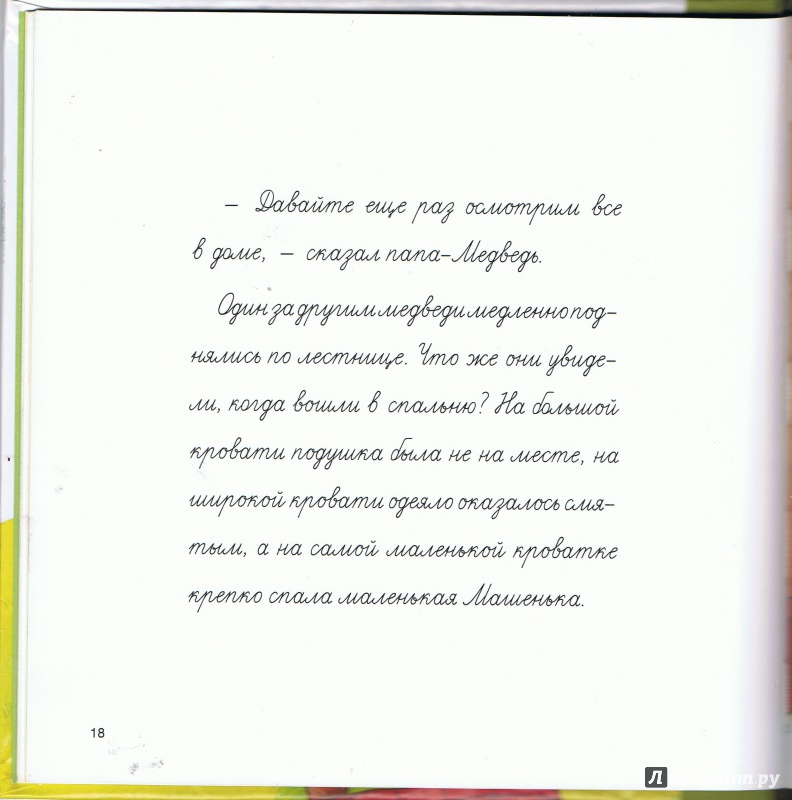 – Давайте еще раз осмотрим все
в доме, – сказал папа-Медведь.
Один за другим медведи медленно под-
нялись по лестнице. Что же они увиде-
ли, когда вошли в спальню? На большой
кровати подушка была не на месте, на
широкой кровати одеяло оказалось смя-
тым, а на самой маленькой кроватке
крепко спала маленькая Машенька.
18